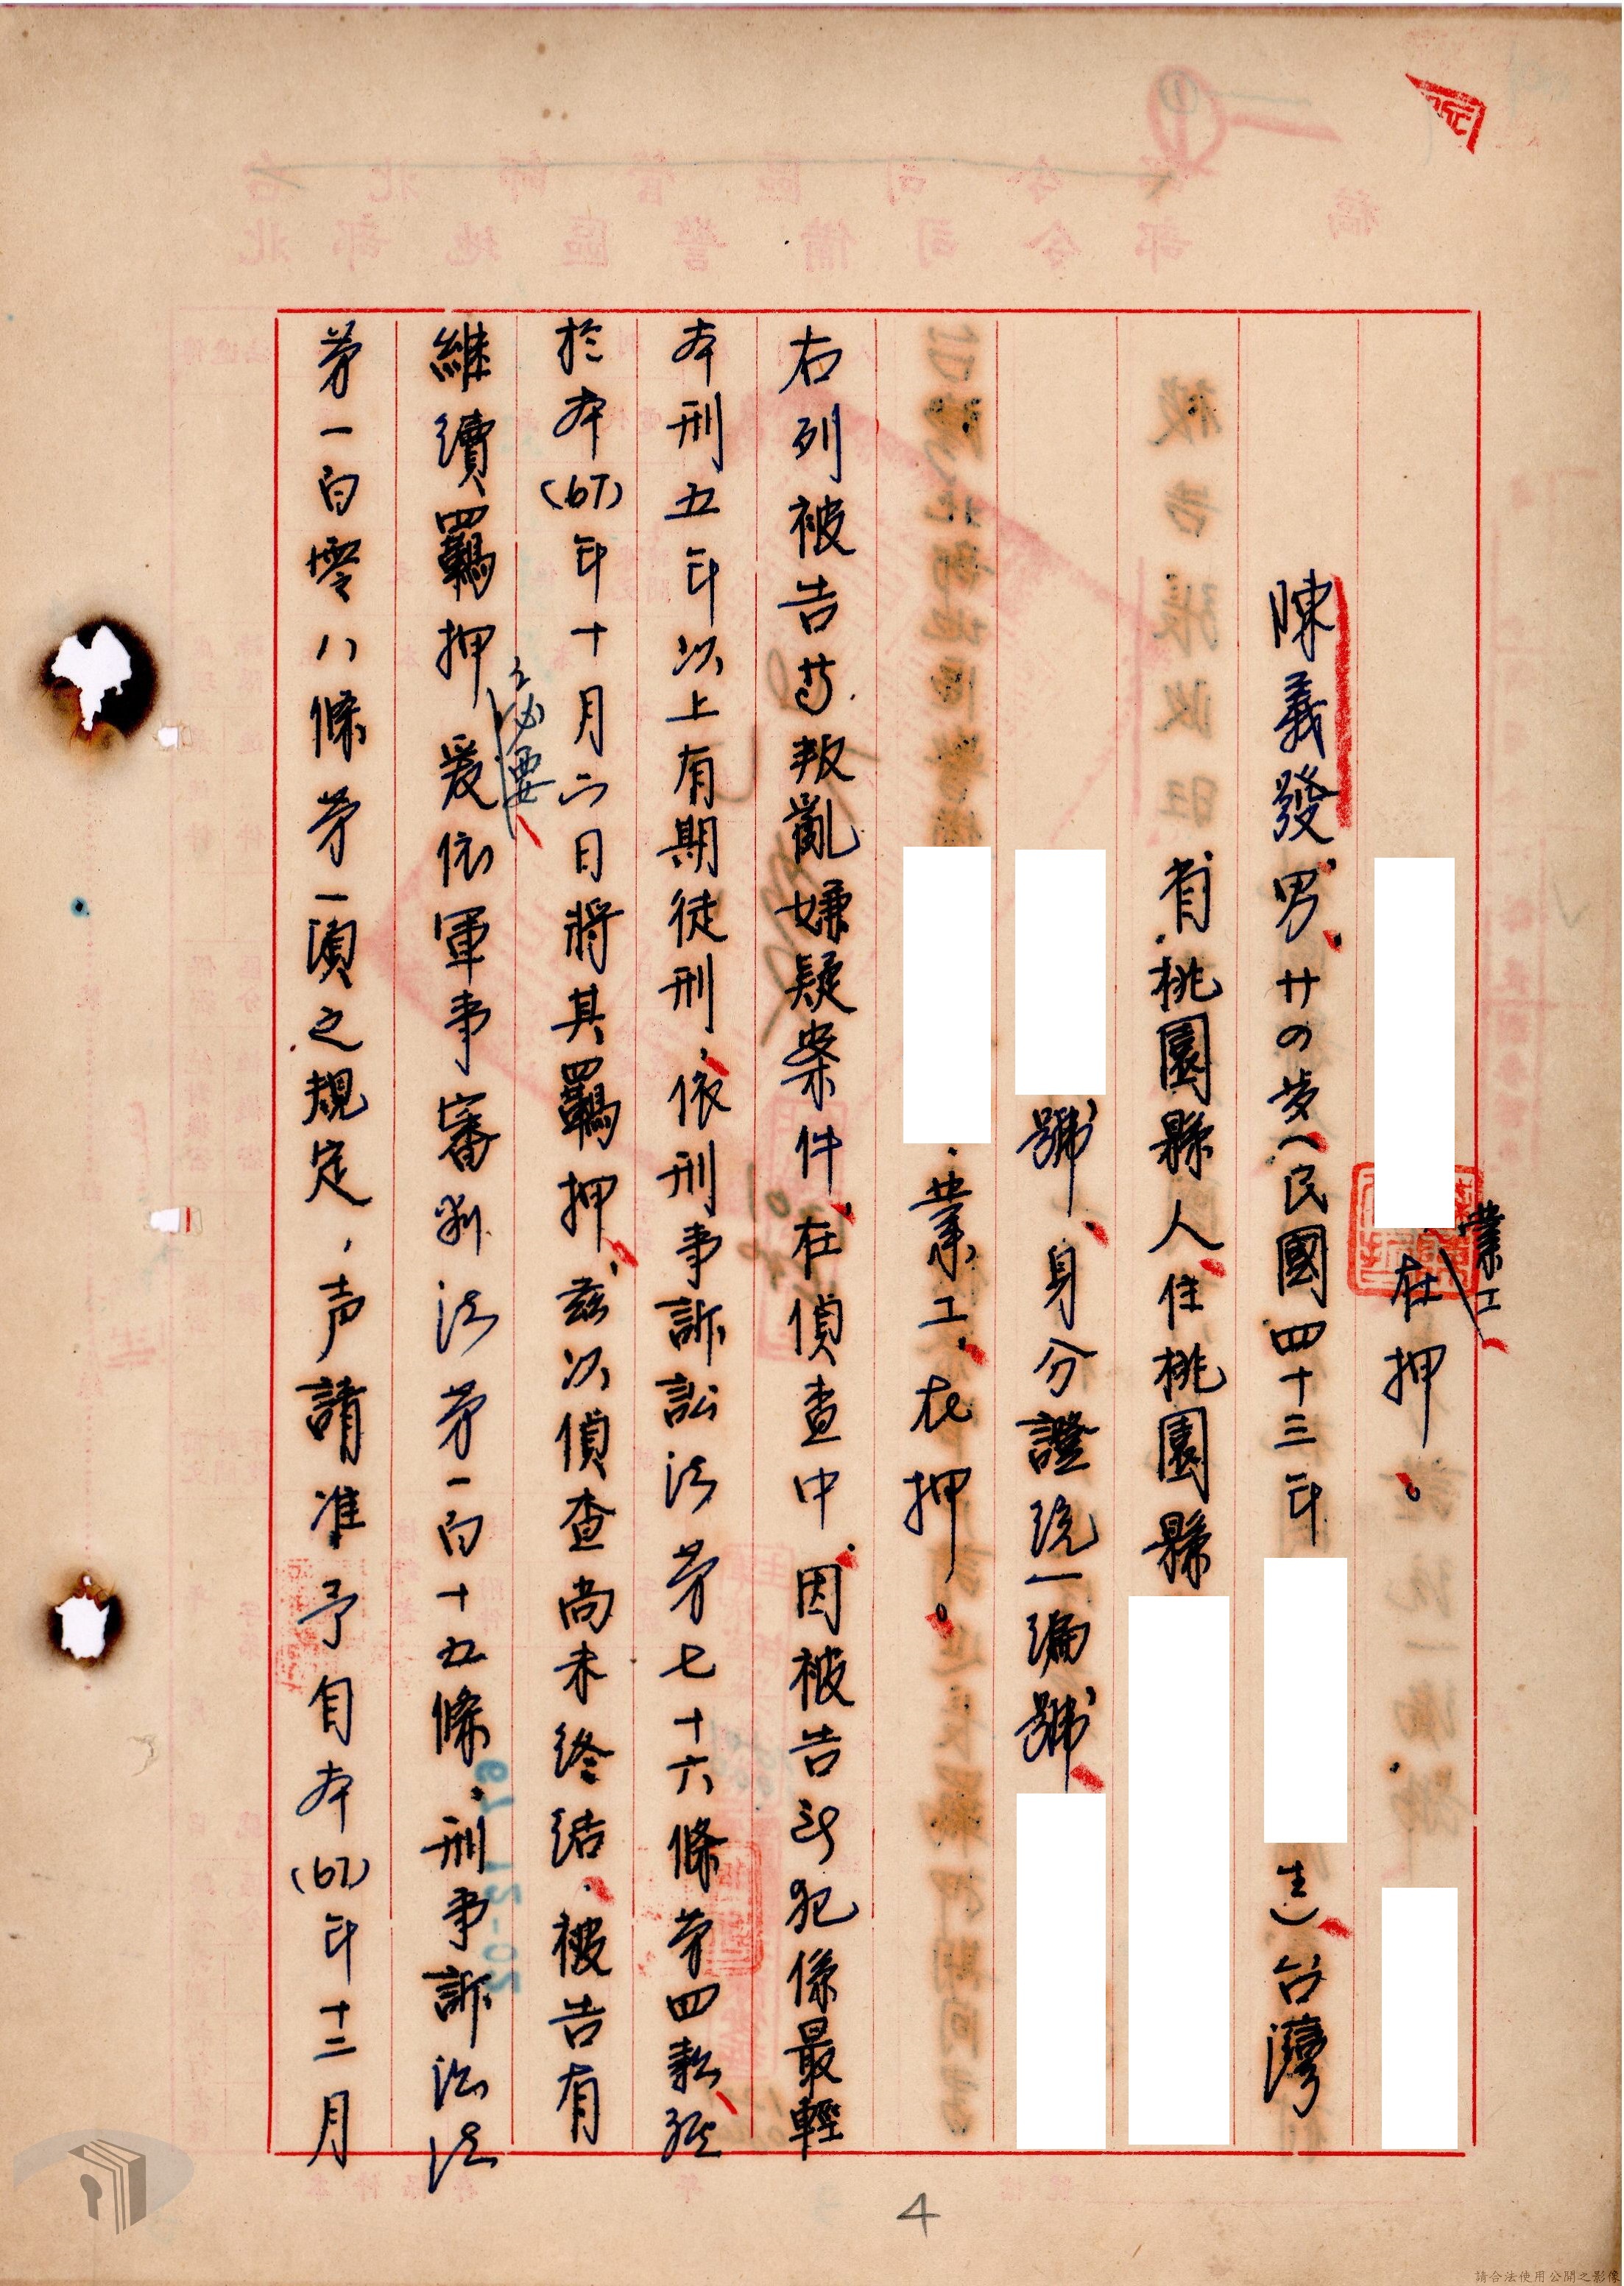 業工
在押。
陳義發 男 廿の歲（民國四十三年
生）台灣
省桃園縣人 住桃園縣
號、身分證統一編號
業工、在押。
右列被告等叛亂嫌疑案件、在偵查中、因被告所犯係最輕
本刑五年以上有期徒刑，依刑事訴訟法第七十六條第四款、經
於本(67)年十月六日將其羈押、茲以偵查尚未終結、被告有
繼續羈押之必要 爰依軍事審判法第一百十五條、刑事訴訟法
第一百零八條第一項之規定，声請准予自本(67)年十二月
4
請合法使用公開之影像